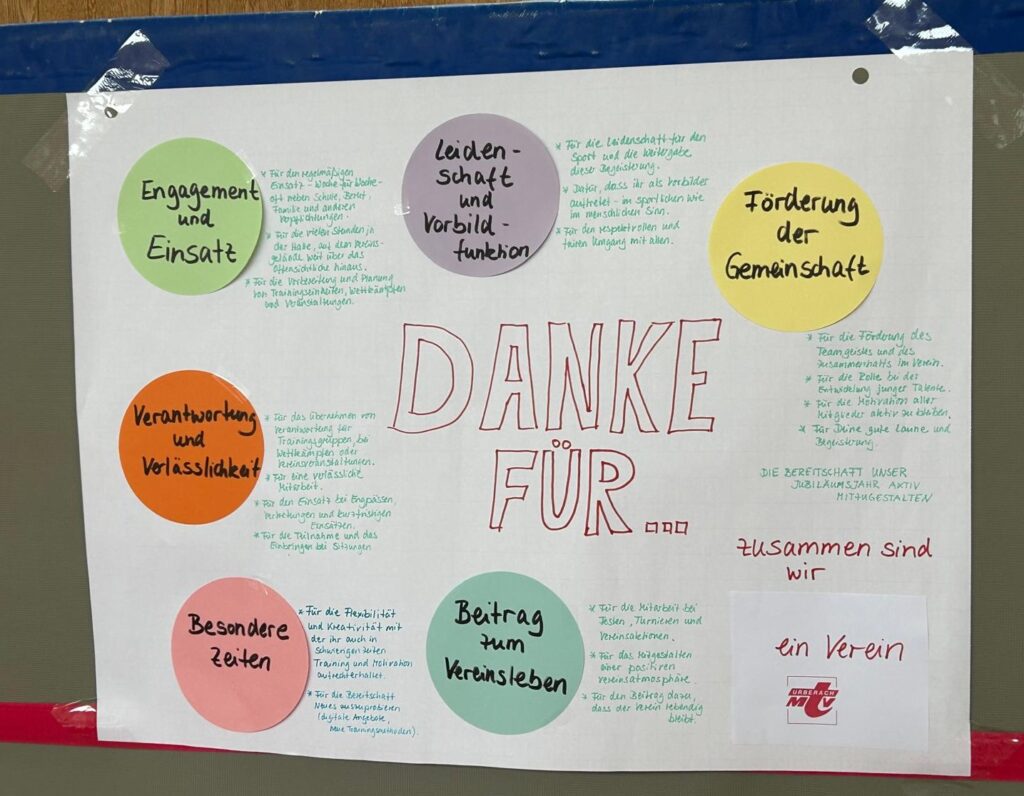 Engagement
und
Einsatz
* Für den regelmäßigen
Einsatz - Woche für Woche -
oft neben Schule, Beruf,
Familie und anderen
Verpflichtungen.
* Für die vielen Stunden in
der Halle, auf dem Vereins-
gelände weit über das
Offensichtliche hinaus.
* Für die Vorbereitung und Planung
von Trainingseinheiten, Wettkämpfen
und Veranstaltungen.
Leiden-
schaft
und
Vorbild-
funktion
* Für die Leidenschaft für den
Sport und die Weitergabe
dieser Begeisterung.
* Dafür, dass ihr als Vorbilder
auftretet - im sportlichen wie
im menschlichen Sinn.
* Für den respektvollen und
fairen Umgang mit allen.
Förderung
der
Gemeinschaft
* Für die Förderung des
Teamgeistes und des
Zusammenhalts im Verein.
* Für die Rolle bei der
Entwicklung junger Talente.
* Für die Motivation aller
Mitglieder aktiv zu bleiben.
* Für Deine gute Laune und
Begeisterung.
DIE BEREITSCHAFT UNSER
JUBILÄUMSJAHR AKTIV
MITZUGESTALTEN
DANKE
FÜR...
Verantwortung
und
Verlässlichkeit
* Für das Übernehmen von
Verantwortung für
Trainingsgruppen, bei
Wettkämpfen oder
Vereinsveranstaltungen.
* Für eine verlässliche
Mitarbeit.
* Für den Einsatz bei Engpässen,
Vertretungen und kurzfristigen
Einsätzen.
* Für die Teilnahme und das
Einbringen bei Sitzungen
Besondere
Zeiten
* Für die Flexibilität
und Kreativität mit
der ihr auch in
schwierigen Zeiten
Training und Motivation
aufrechterhaltet.
* Für die Bereitschaft
Neues auszuprobieren
(digitale Angebote,
neue Trainingsmethoden).
Beitrag
zum
Vereinsleben
* Für die Mitarbeit bei
Festen, Turnieren und
Vereinsaktionen.
* Für das Mitgestalten
einer positiven
Vereinsatmosphäre.
* Für den Beitrag dazu,
dass der Verein lebendig
bleibt.
Zusammen sind
wir
ein Verein
URBERACH
MTV